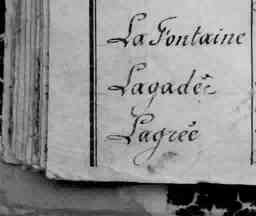 La Fontaine
Lagadec
Lagrée